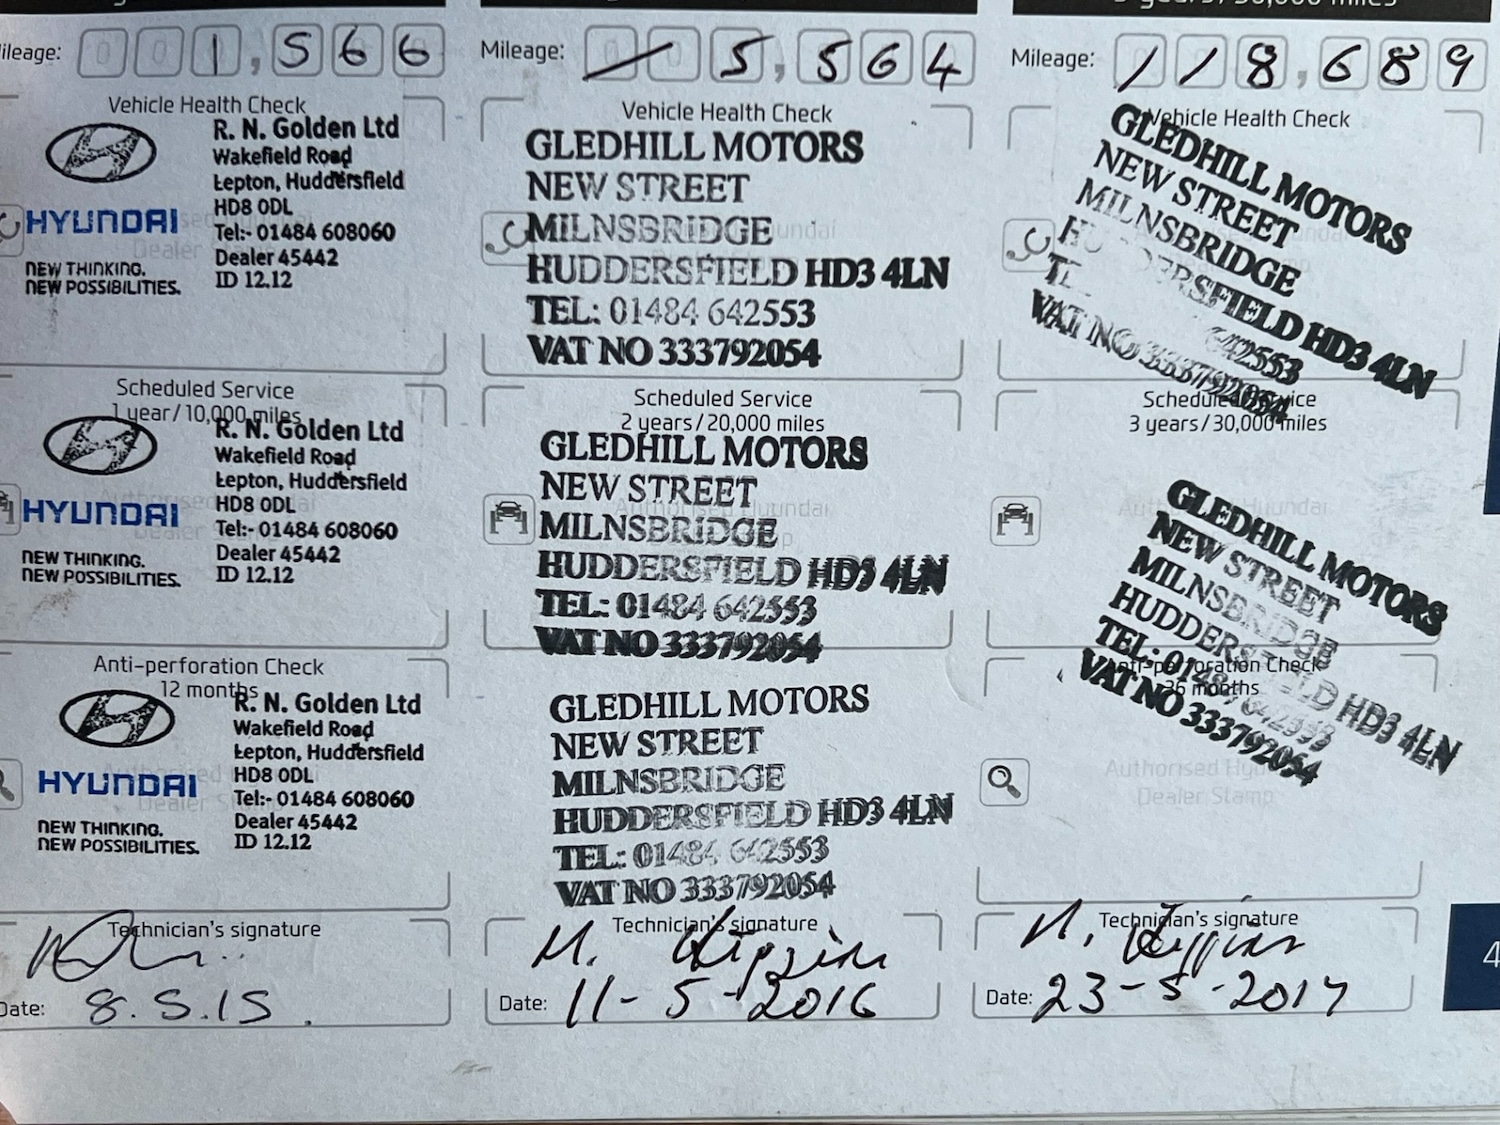 Mileage: 001,566
Vehicle Health Check
R. N. Golden Ltd
Wakefield Road
Lepton, Huddersfield
HD8 0DL
HYUNDAI
Tel:- 01484 608060
Dealer 45442
NEW THINKING.
NEW POSSIBILITIES.
ID 12.12
Scheduled Service
1 year/10,000 miles
R. N. Golden Ltd
Wakefield Road
Lepton, Huddersfield
HD8 0DL
HYUNDAI
Tel:- 01484 608060
Dealer 45442
NEW THINKING.
NEW POSSIBILITIES.
ID 12.12
Anti-perforation Check
12 months
R. N. Golden Ltd
Wakefield Road
Lepton, Huddersfield
HD8 0DL
HYUNDAI
Tel:- 01484 608060
Dealer 45442
NEW THINKING.
NEW POSSIBILITIES.
ID 12.12
Technician's signature
Date: 8.5.15
Mileage: 5,564
Vehicle Health Check
GLEDHILL MOTORS
NEW STREET
MILNSBRIDGE
HUDDERSFIELD HD3 4LN
TEL: 01484 642553
VAT NO 333792054
Scheduled Service
2 years/20,000 miles
GLEDHILL MOTORS
NEW STREET
MILNSBRIDGE
HUDDERSFIELD HD3 4LN
TEL: 01484 642553
VAT NO 333792054
GLEDHILL MOTORS
NEW STREET
MILNSBRIDGE
HUDDERSFIELD HD3 4LN
TEL: 01484 642553
VAT NO 333792054
Technician's signature
Date: 11-5-2016
Mileage: //8,689
Vehicle Health Check
GLEDHILL MOTORS
NEW STREET
MILNSBRIDGE
HUDDERSFIELD HD3 4LN
642553
VAT NO 333792054
Scheduled Service
3 years/30,000 miles
Authorised Hyundai
GLEDHILL MOTORS
NEW STREET
MILNSBRIDGE
HUDDERSFIELD HD3 4LN
TEL: 01484 642553
VAT NO 333792054
Anti-perforation Check
36 months
Authorised Hyundai
Dealer Stamp
Technician's signature
Date: 23-5-2017
4